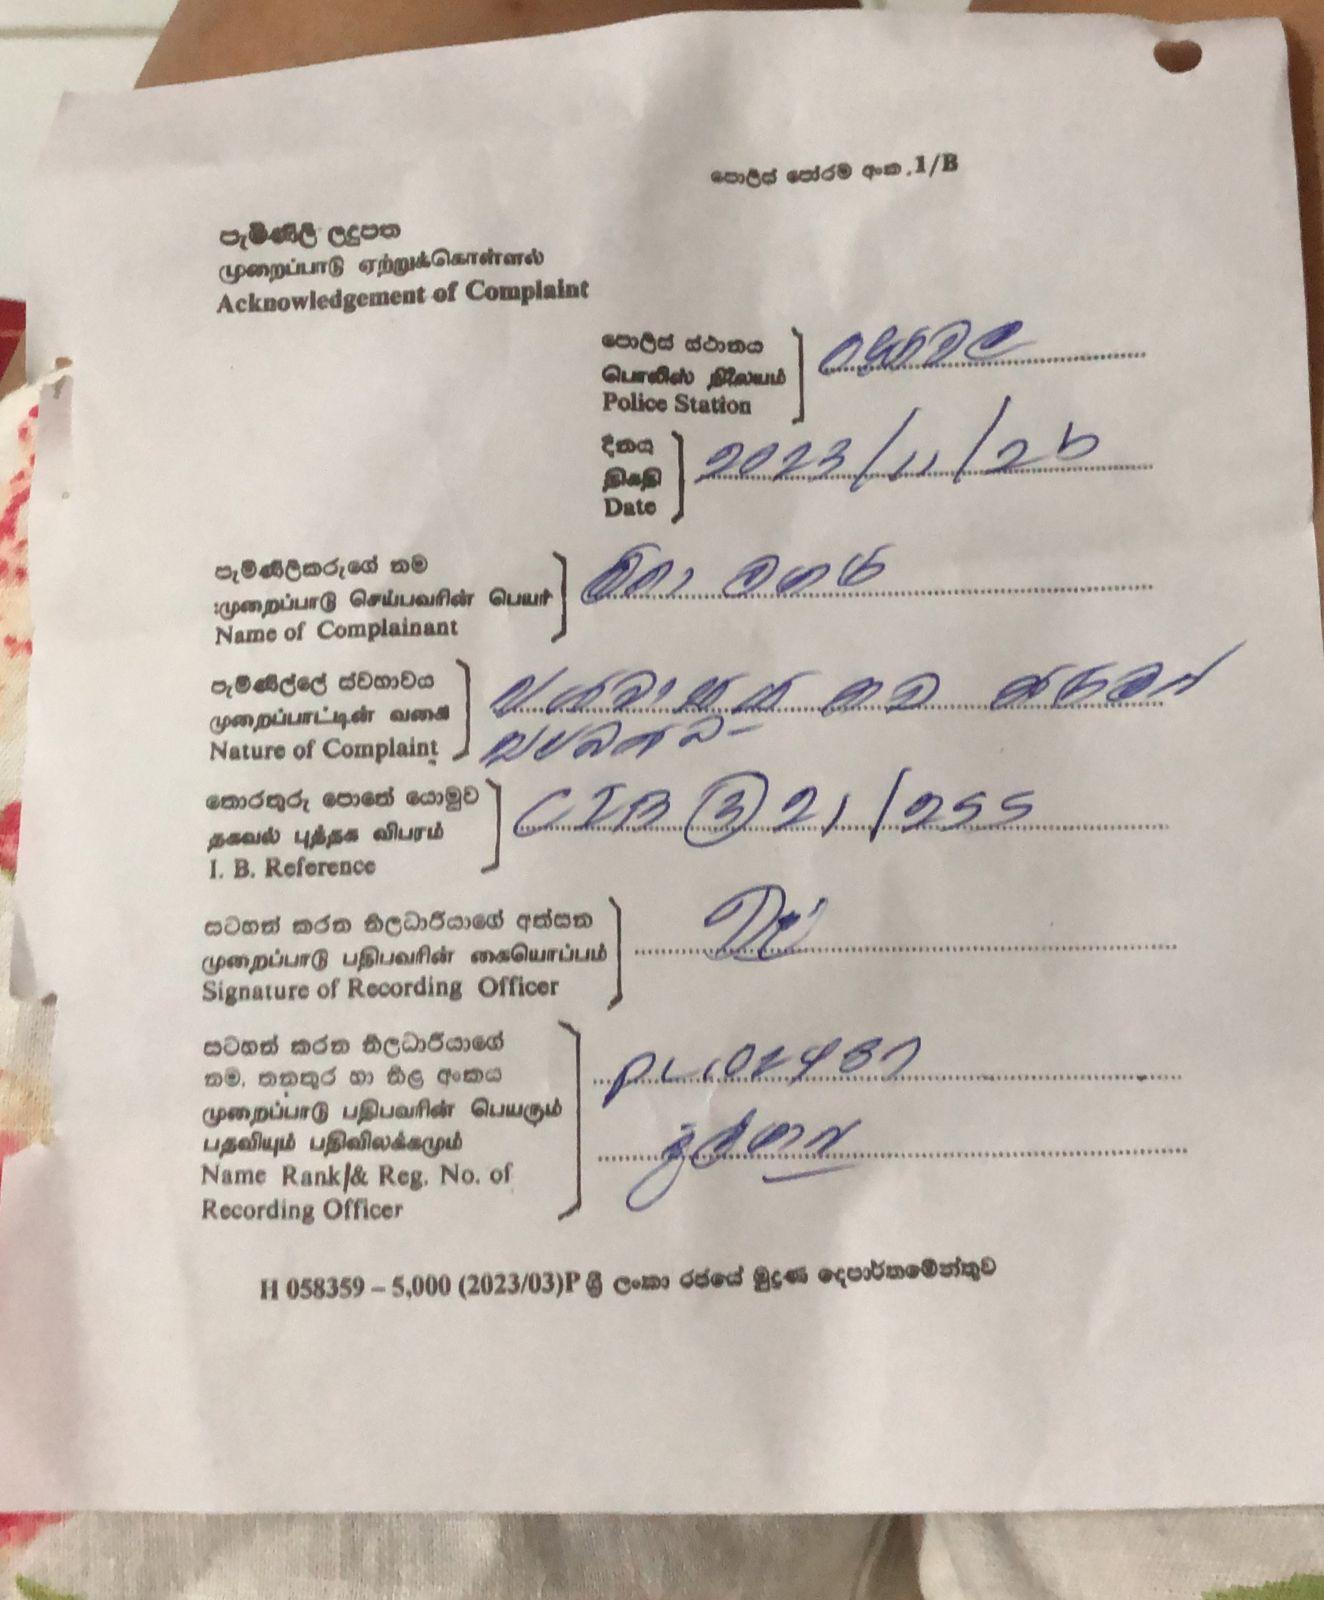 පොලිස් පෝරම අංක.1/B
පැමිණිලි ලදුපත
முறைப்பாடு ஏற்றுக்கொள்ளல்
Acknowledgement of Complaint
පොලිස් ස්ථානය
பொலிஸ் நிலையம்
Police Station
දිනය
திகதி
Date
2023/11/26
පැමිණිලිකරුගේ නම
முறைப்பாடு செய்பவரின் பெயர்
Name of Complainant
පැමිණිල්ලේ ස්වභාවය
முறைப்பாட்டின் வகை
Nature of Complaint
තොරතුරු පොතේ යොමුව
தகவல் புத்தக விபரம்
I. B. Reference
CIB 3 21/255
සටහන් කරන නිලධාරියාගේ අත්සන
முறைப்பாடு பதிபவரின் கையொப்பம்
Signature of Recording Officer
සටහන් කරන නිලධාරියාගේ
නම, තනතුර හා නිල අංකය
முறைப்பாடு பதிபவரின் பெயரும்
பதவியும் பதிவிலக்கமும்
Name Rank/& Reg. No. of
Recording Officer
H 058359 – 5,000 (2023/03)P ශ්‍රී ලංකා රජයේ මුද්‍රණ දෙපාර්තමේන්තුව